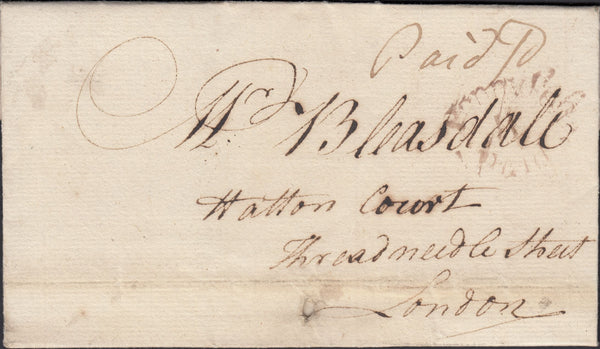 Paid
Mr Bleasdale
Hatton Court
Threadneedle Street
London